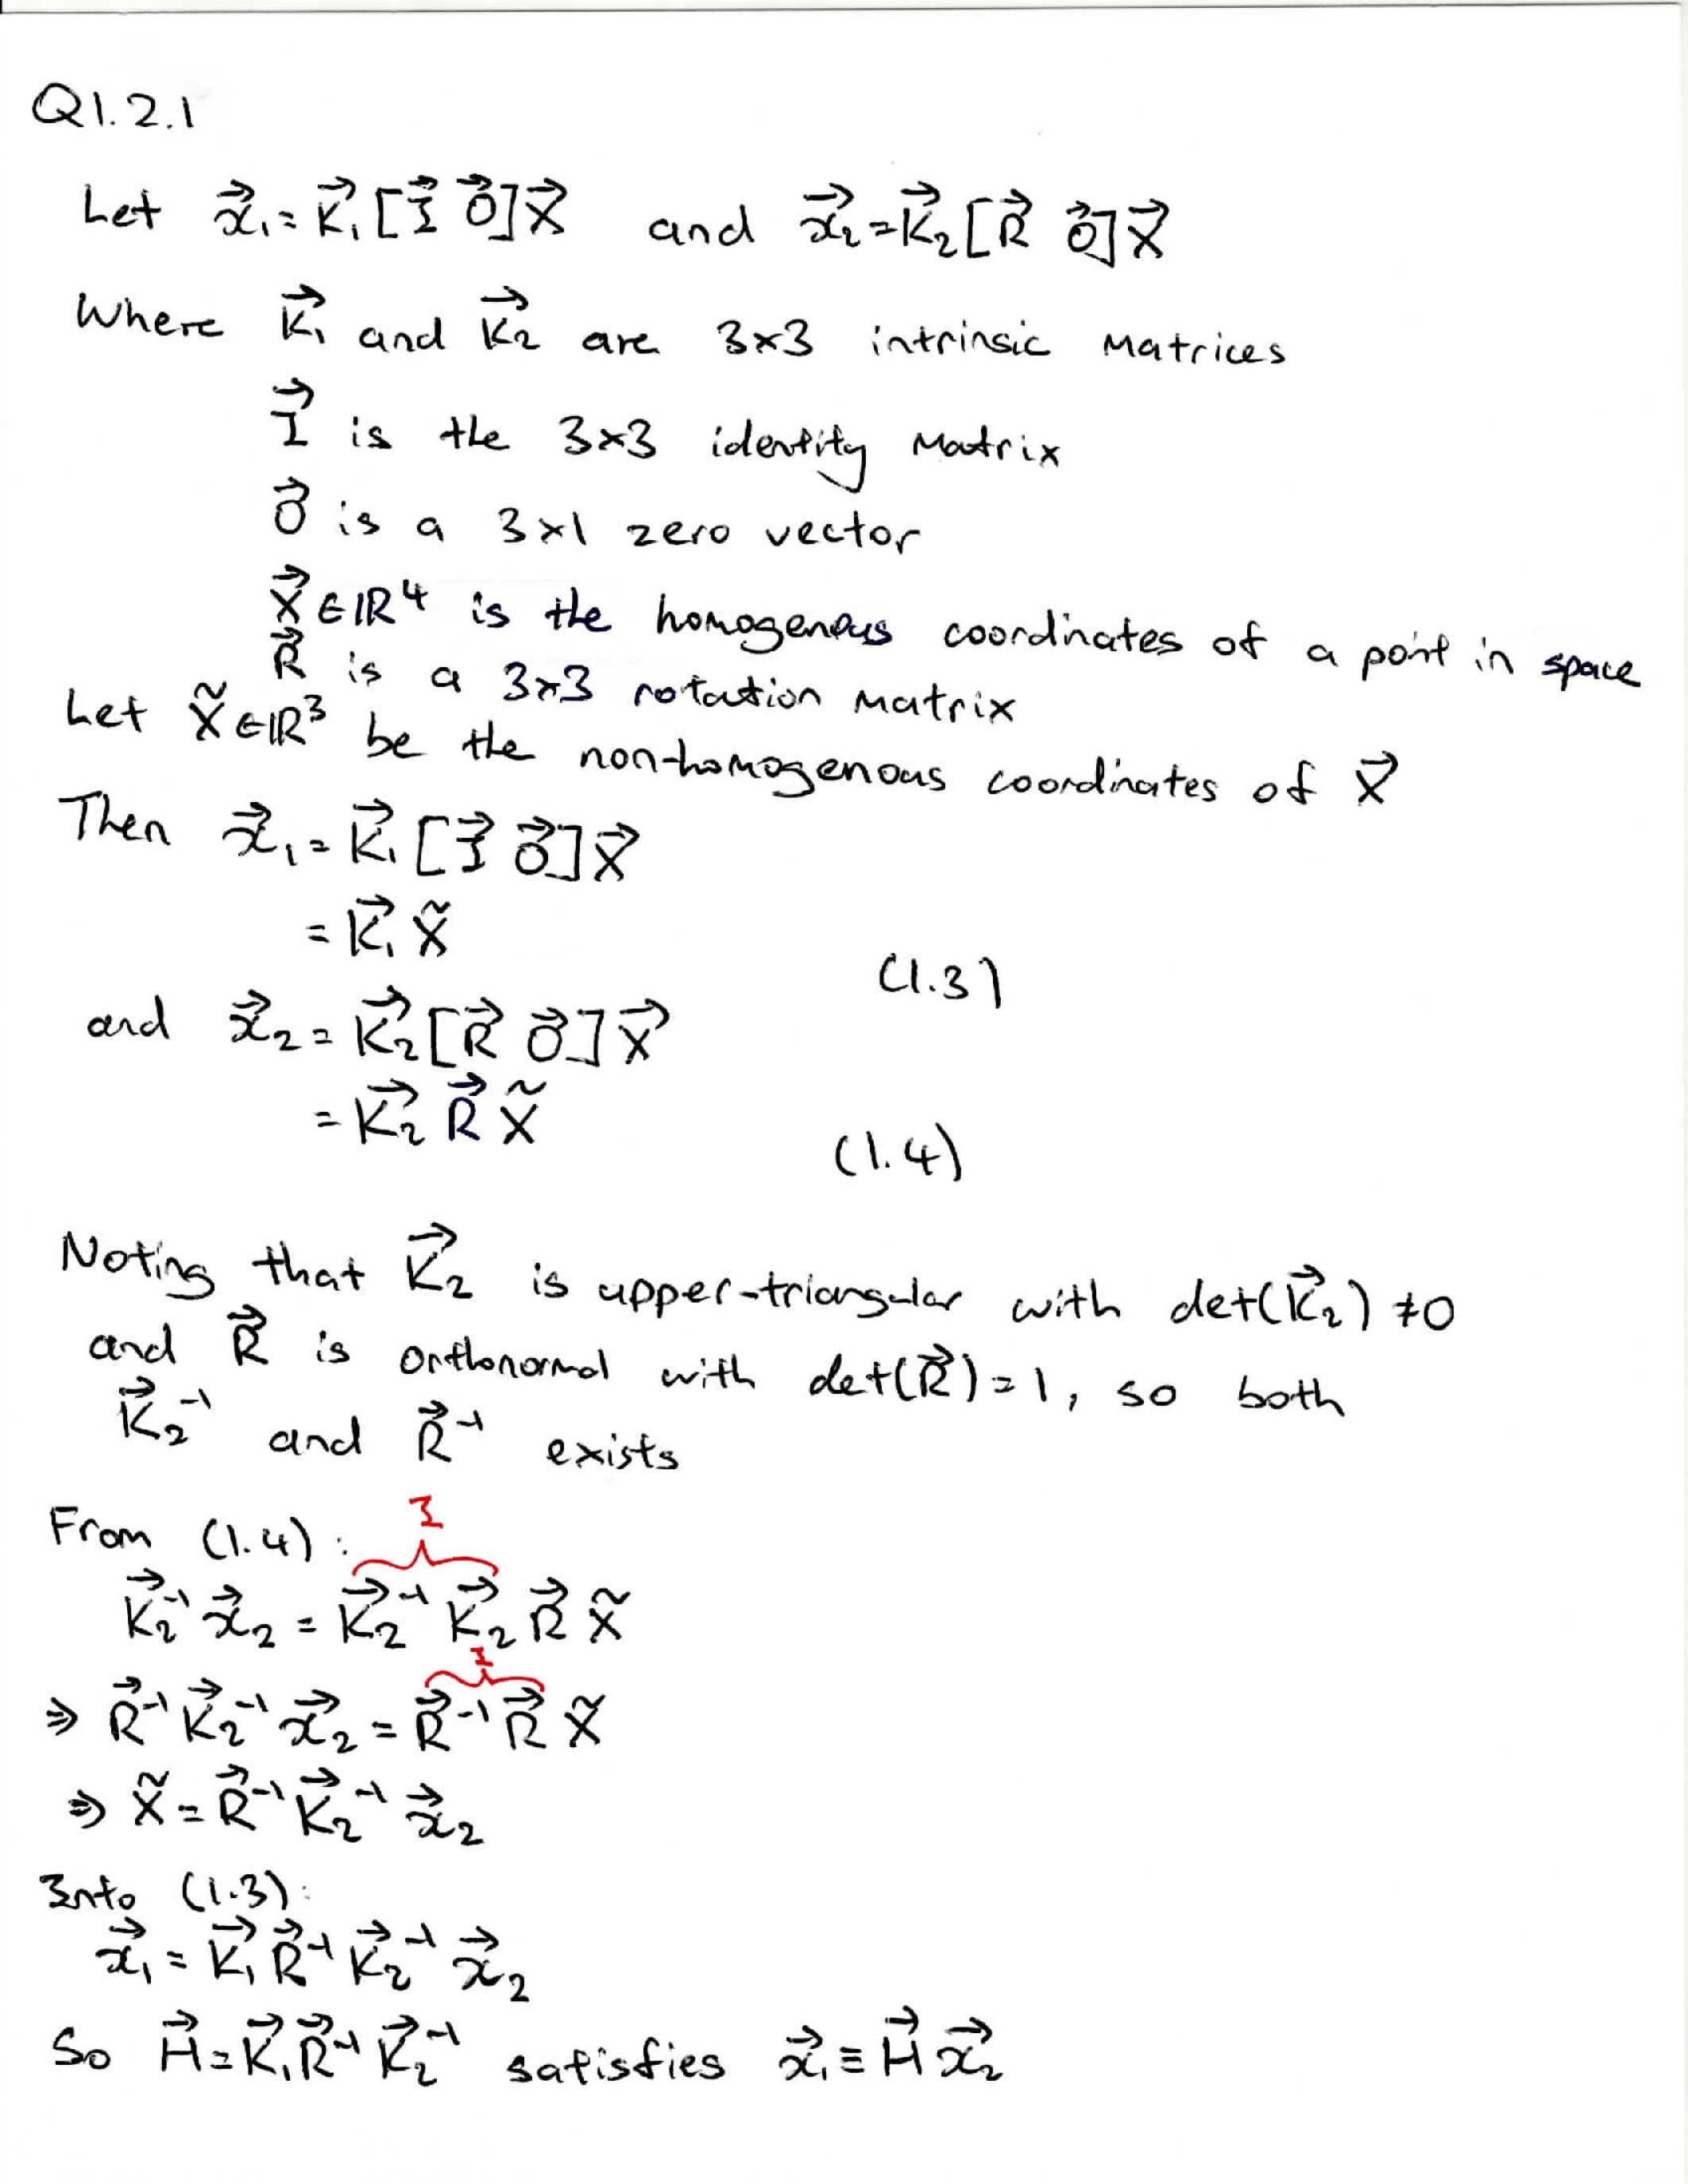 Q1.2.1
Let x⃗₁ = K⃗₁ [I⃗ 0⃗] X⃗ and x⃗₂ = K⃗₂ [R⃗ 0⃗] X⃗
Where K⃗₁ and K⃗₂ are 3×3 intrinsic matrices
I⃗ is the 3×3 identity matrix
0⃗ is a 3×1 zero vector
X⃗ ∈ ℝ⁴ is the homogenous coordinates of a point in space
R⃗ is a 3×3 rotation matrix
Let X̃ ∈ ℝ³ be the non-homogenous coordinates of X⃗
Then x⃗₁ = K⃗₁ [I⃗ 0⃗] X⃗
= K⃗₁ X̃ (1.3)
and x⃗₂ = K⃗₂ [R⃗ 0⃗] X⃗
= K⃗₂ R⃗ X̃ (1.4)
Noting that K⃗₂ is upper-triangular with det(K⃗₂) ≠ 0
and R⃗ is orthonormal with det(R⃗) = 1, so both
K⃗₂⁻¹ and R⃗⁻¹ exists
From (1.4):
I
K⃗₂⁻¹ x⃗₂ = K⃗₂⁻¹ K⃗₂ R⃗ X̃
I
⇒ R⃗⁻¹ K⃗₂⁻¹ x⃗₂ = R⃗⁻¹ R⃗ X̃
⇒ X̃ = R⃗⁻¹ K⃗₂⁻¹ x⃗₂
Into (1.3):
x⃗₁ = K⃗₁ R⃗⁻¹ K⃗₂⁻¹ x⃗₂
So H⃗ = K⃗₁ R⃗⁻¹ K⃗₂⁻¹ satisfies x⃗₁ ≡ H⃗ x⃗₂